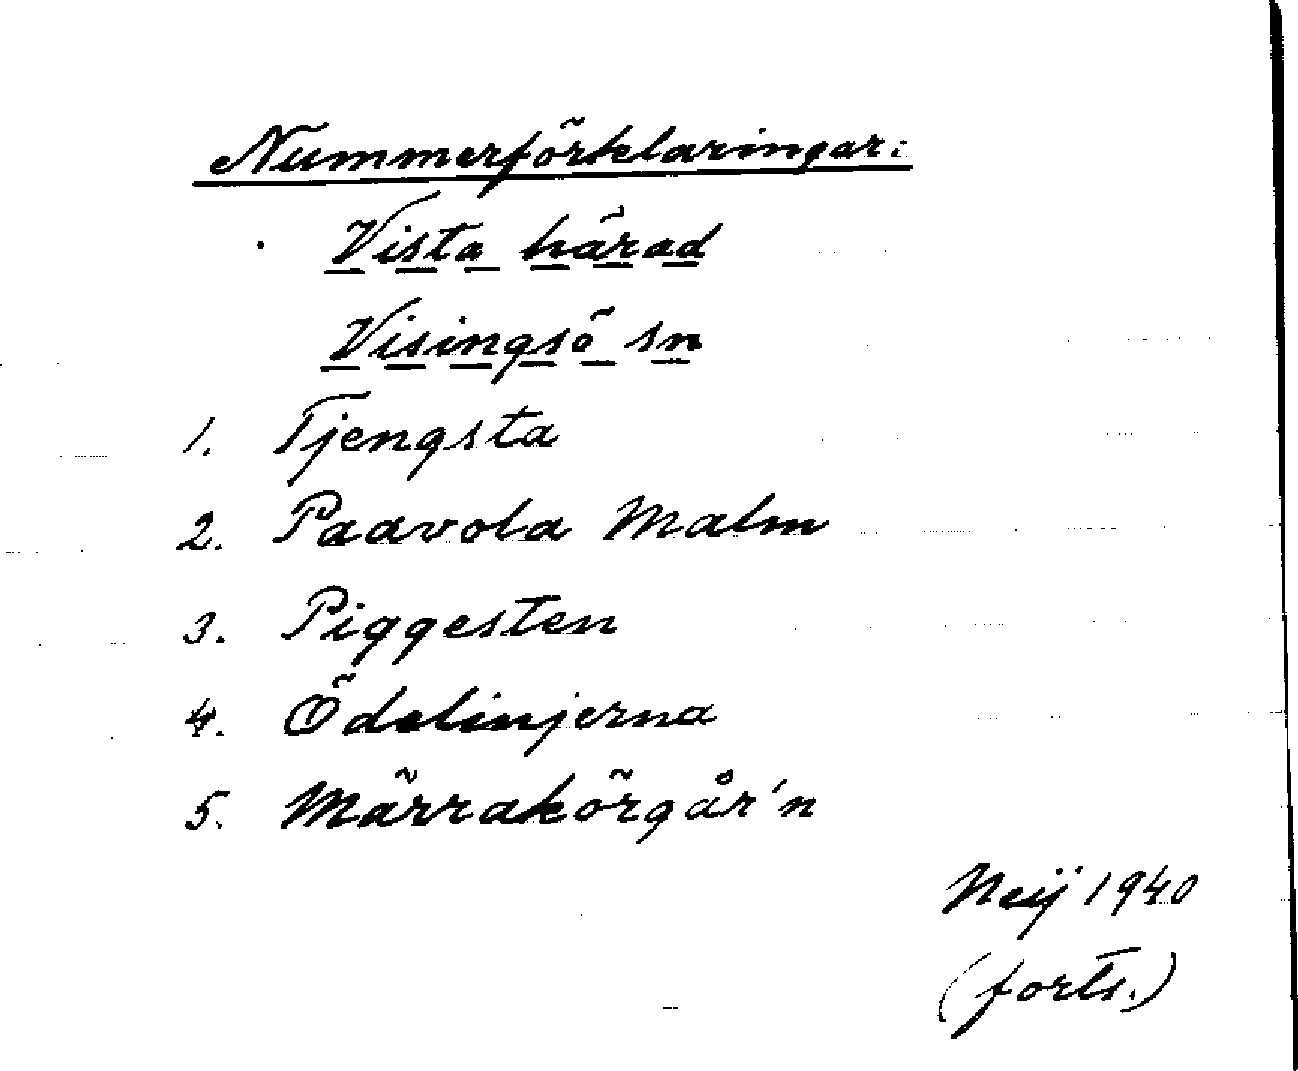 Nummerförklaringar:
Vista härad
Visingsö sn
1. Tjengsta
2. Paavola Malm
3. Piggesten
4. Ödelinjerna
5. Märrakörgår'n
Neij 1940
(forts.)